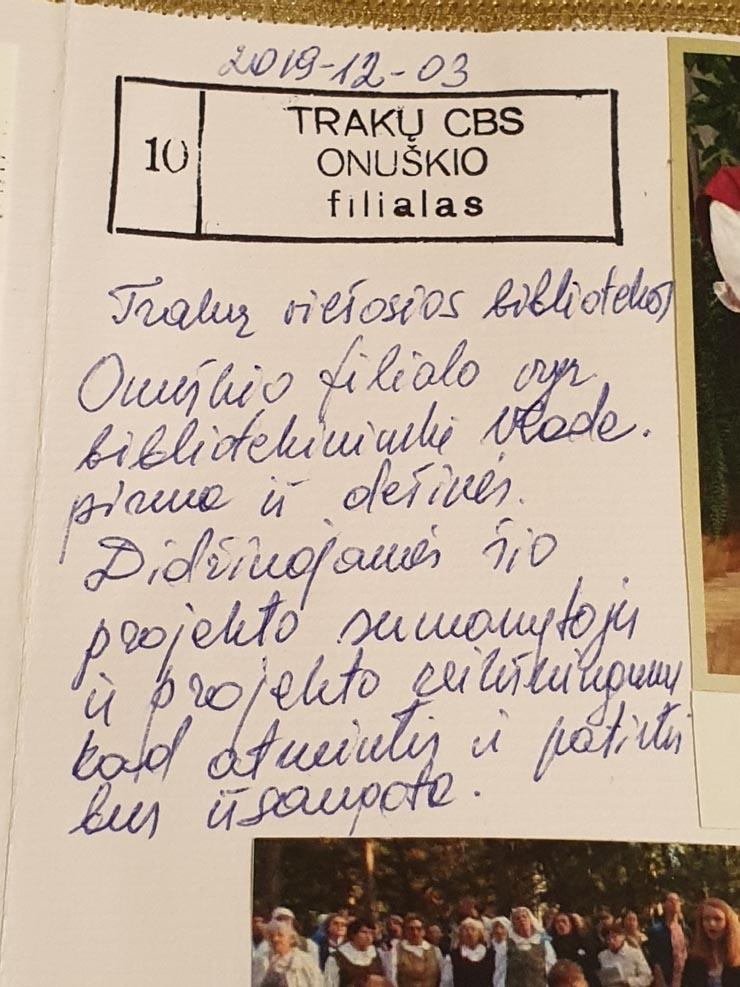 2019-12-03
10
TRAKŲ CBS
ONUŠKIO
filialas
Trakų viešosios bibliotekos
Onuškio filialo vyr.
bibliotekininkė Vlada.
pirma iš dešinės.
Didžiuojamės šio
projekto sumanytoju
ir projekto reikšmingumu
kad atmintis ir patirtis
bus išsaugota.